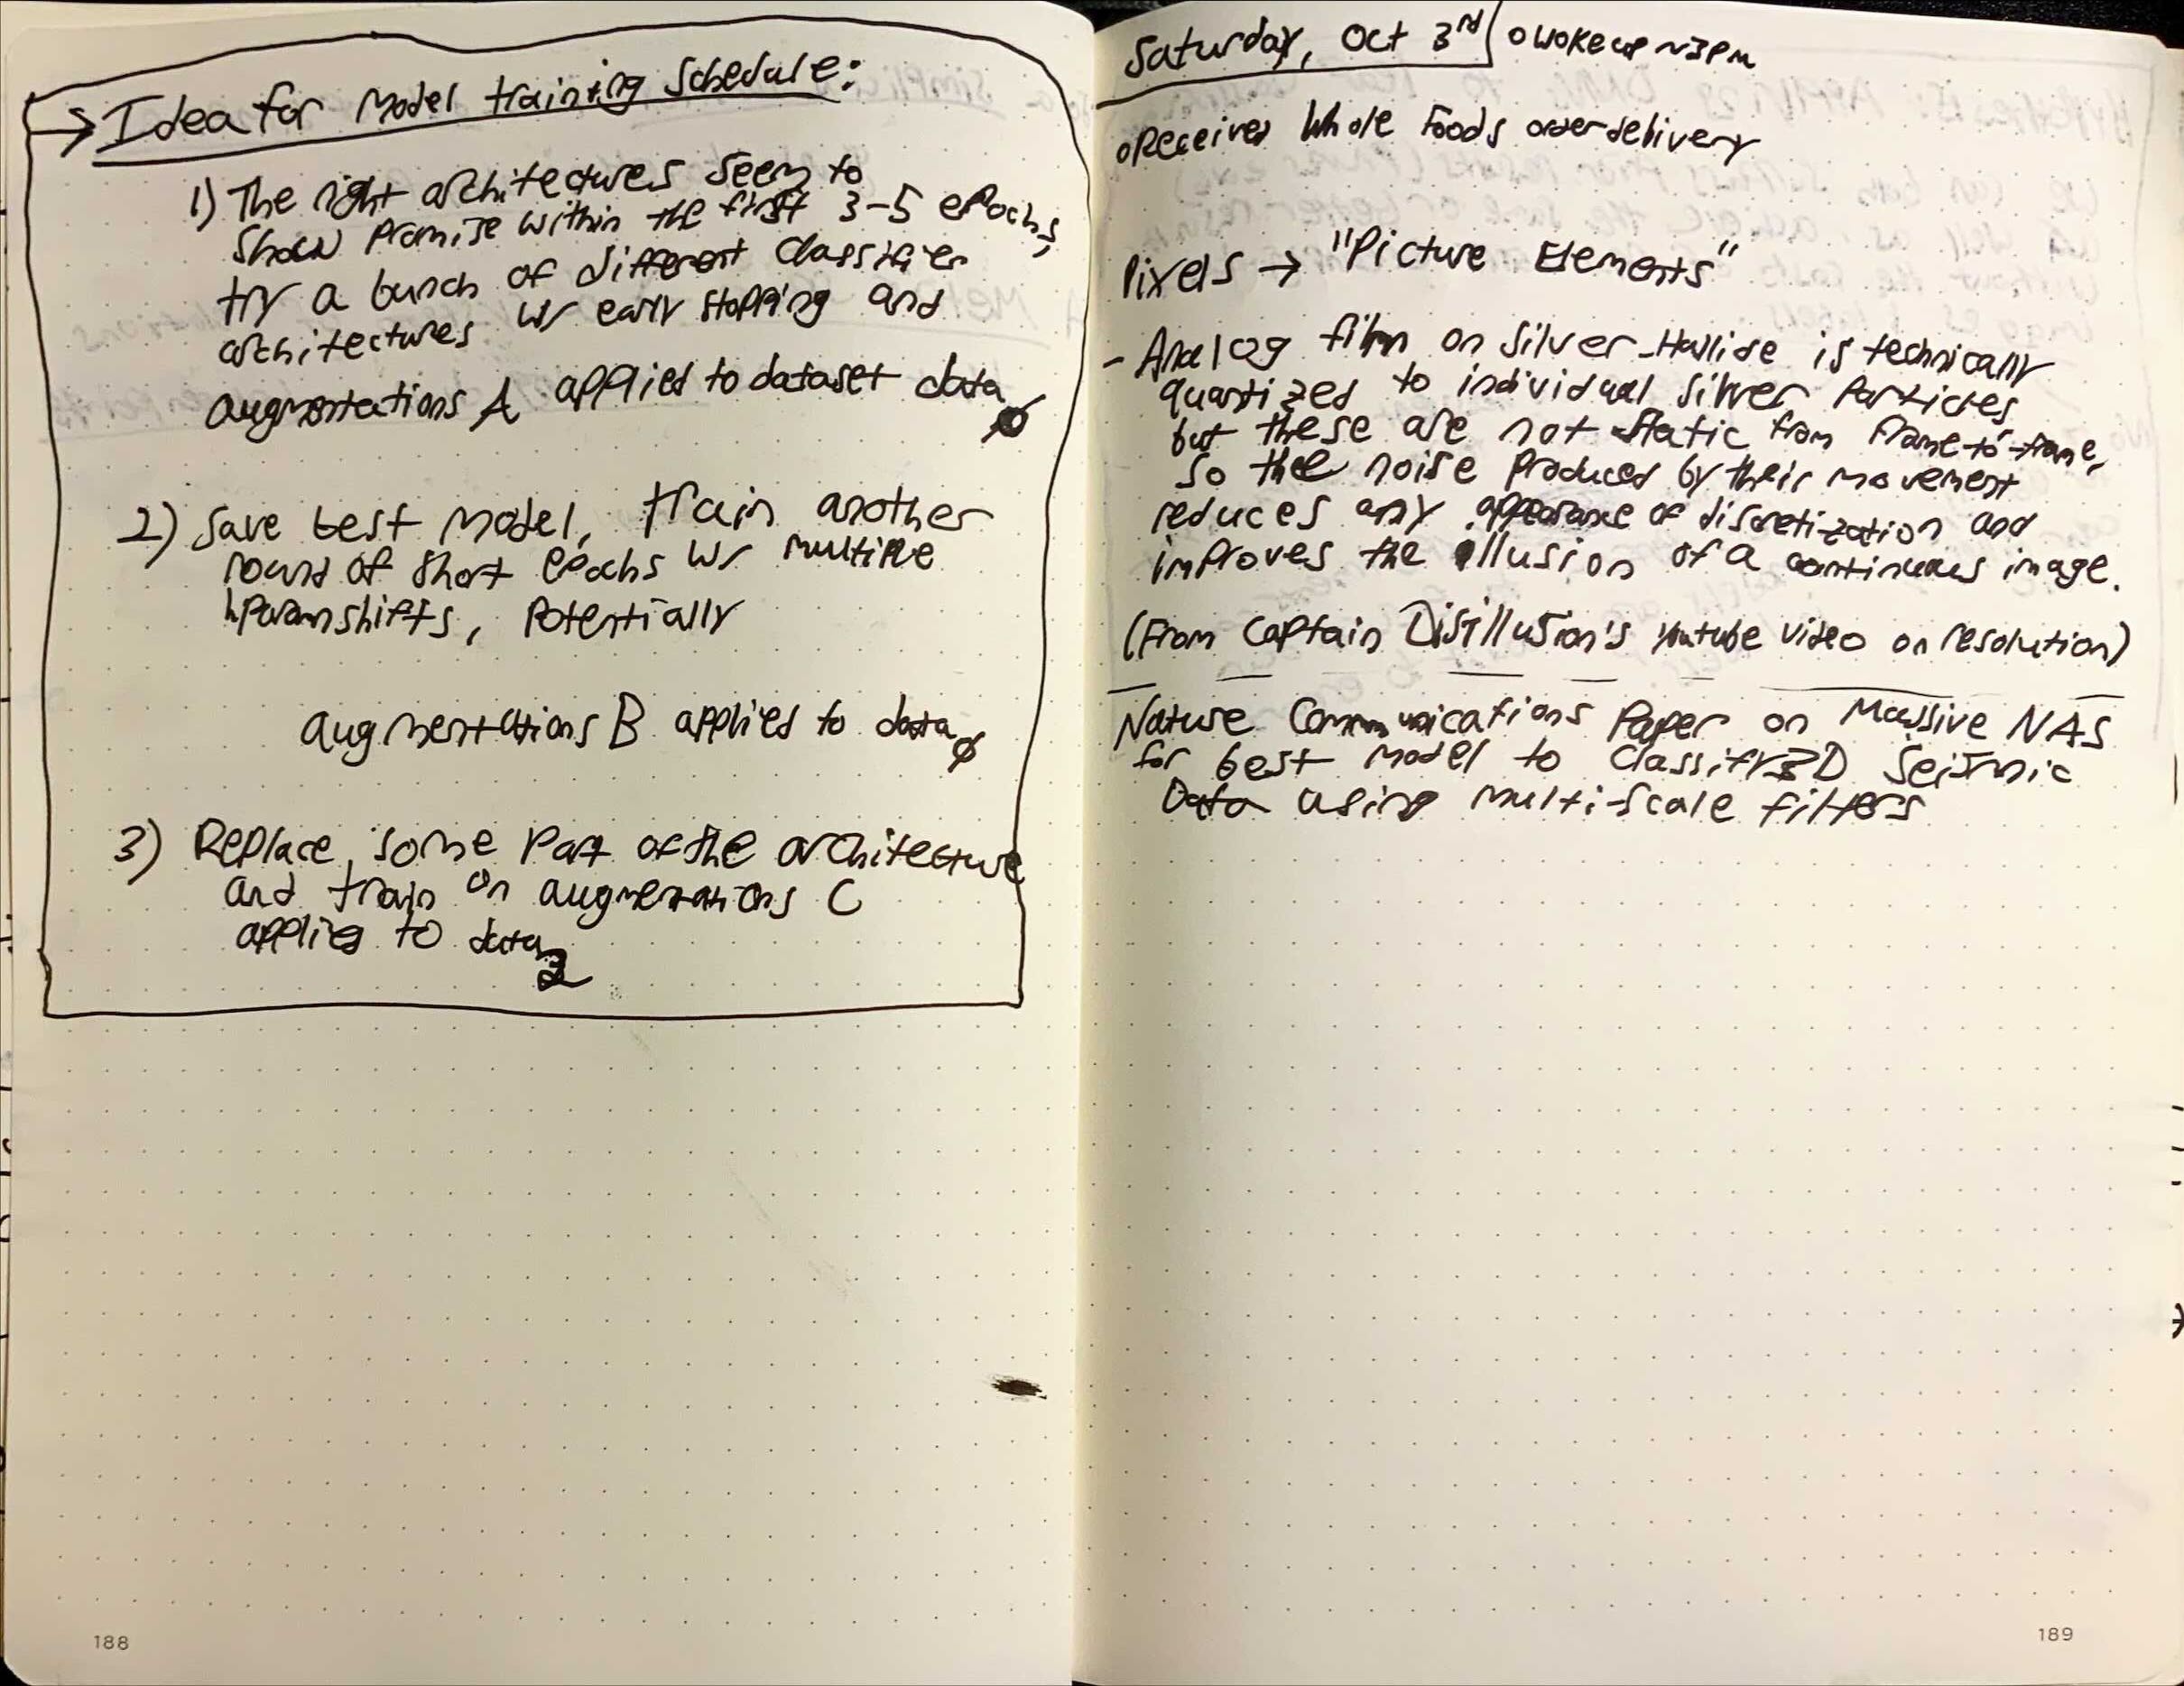 → Idea for Model training Schedule:
1) The right architectures seem to
show promise within the first 3-5 epochs,
try a bunch of different classifier
architectures w/ early stopping and
augmentations A applied to dataset data
2) Save best model, train another
round of short epochs w/ multiple
hparam shifts, potentially
augmentations B applied to data ø
3) Replace some part of the architecture
and train on augmentations C
applied to data 2
188
Saturday, Oct 3rd
o woke up ~3pm
o Received Whole Foods order delivery
Pixels → "Picture Elements"
- Analog film on silver-Hallide is technically
quantized to individual silver particles
but these are not static from frame-to-frame,
so the noise produced by their movement
reduces any appearance of discretization and
improves the illusion of a continuous image.
(From Captain Disillusion's Youtube video on resolution)
Nature Communications Paper on Massive NAS
for best model to classify 3D Seismic
Data using multi-scale filters
189